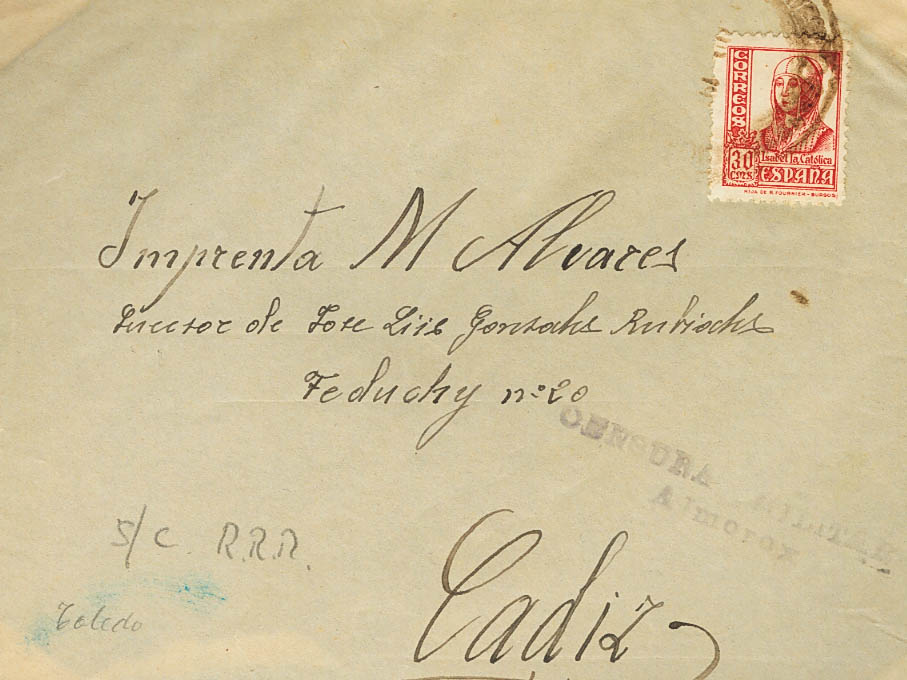 CORREOS
30
CTMS
Isabel la Católica
ESPAÑA
HIJA DE B. FOURNIER - BURGOS
Imprenta M Alvares
Sucesor de Jose Luis Gonsales
Feduchy nº 20
CENSURA MILITAR
Almorox
S/C. R.R.R.
Toledo
Cadiz